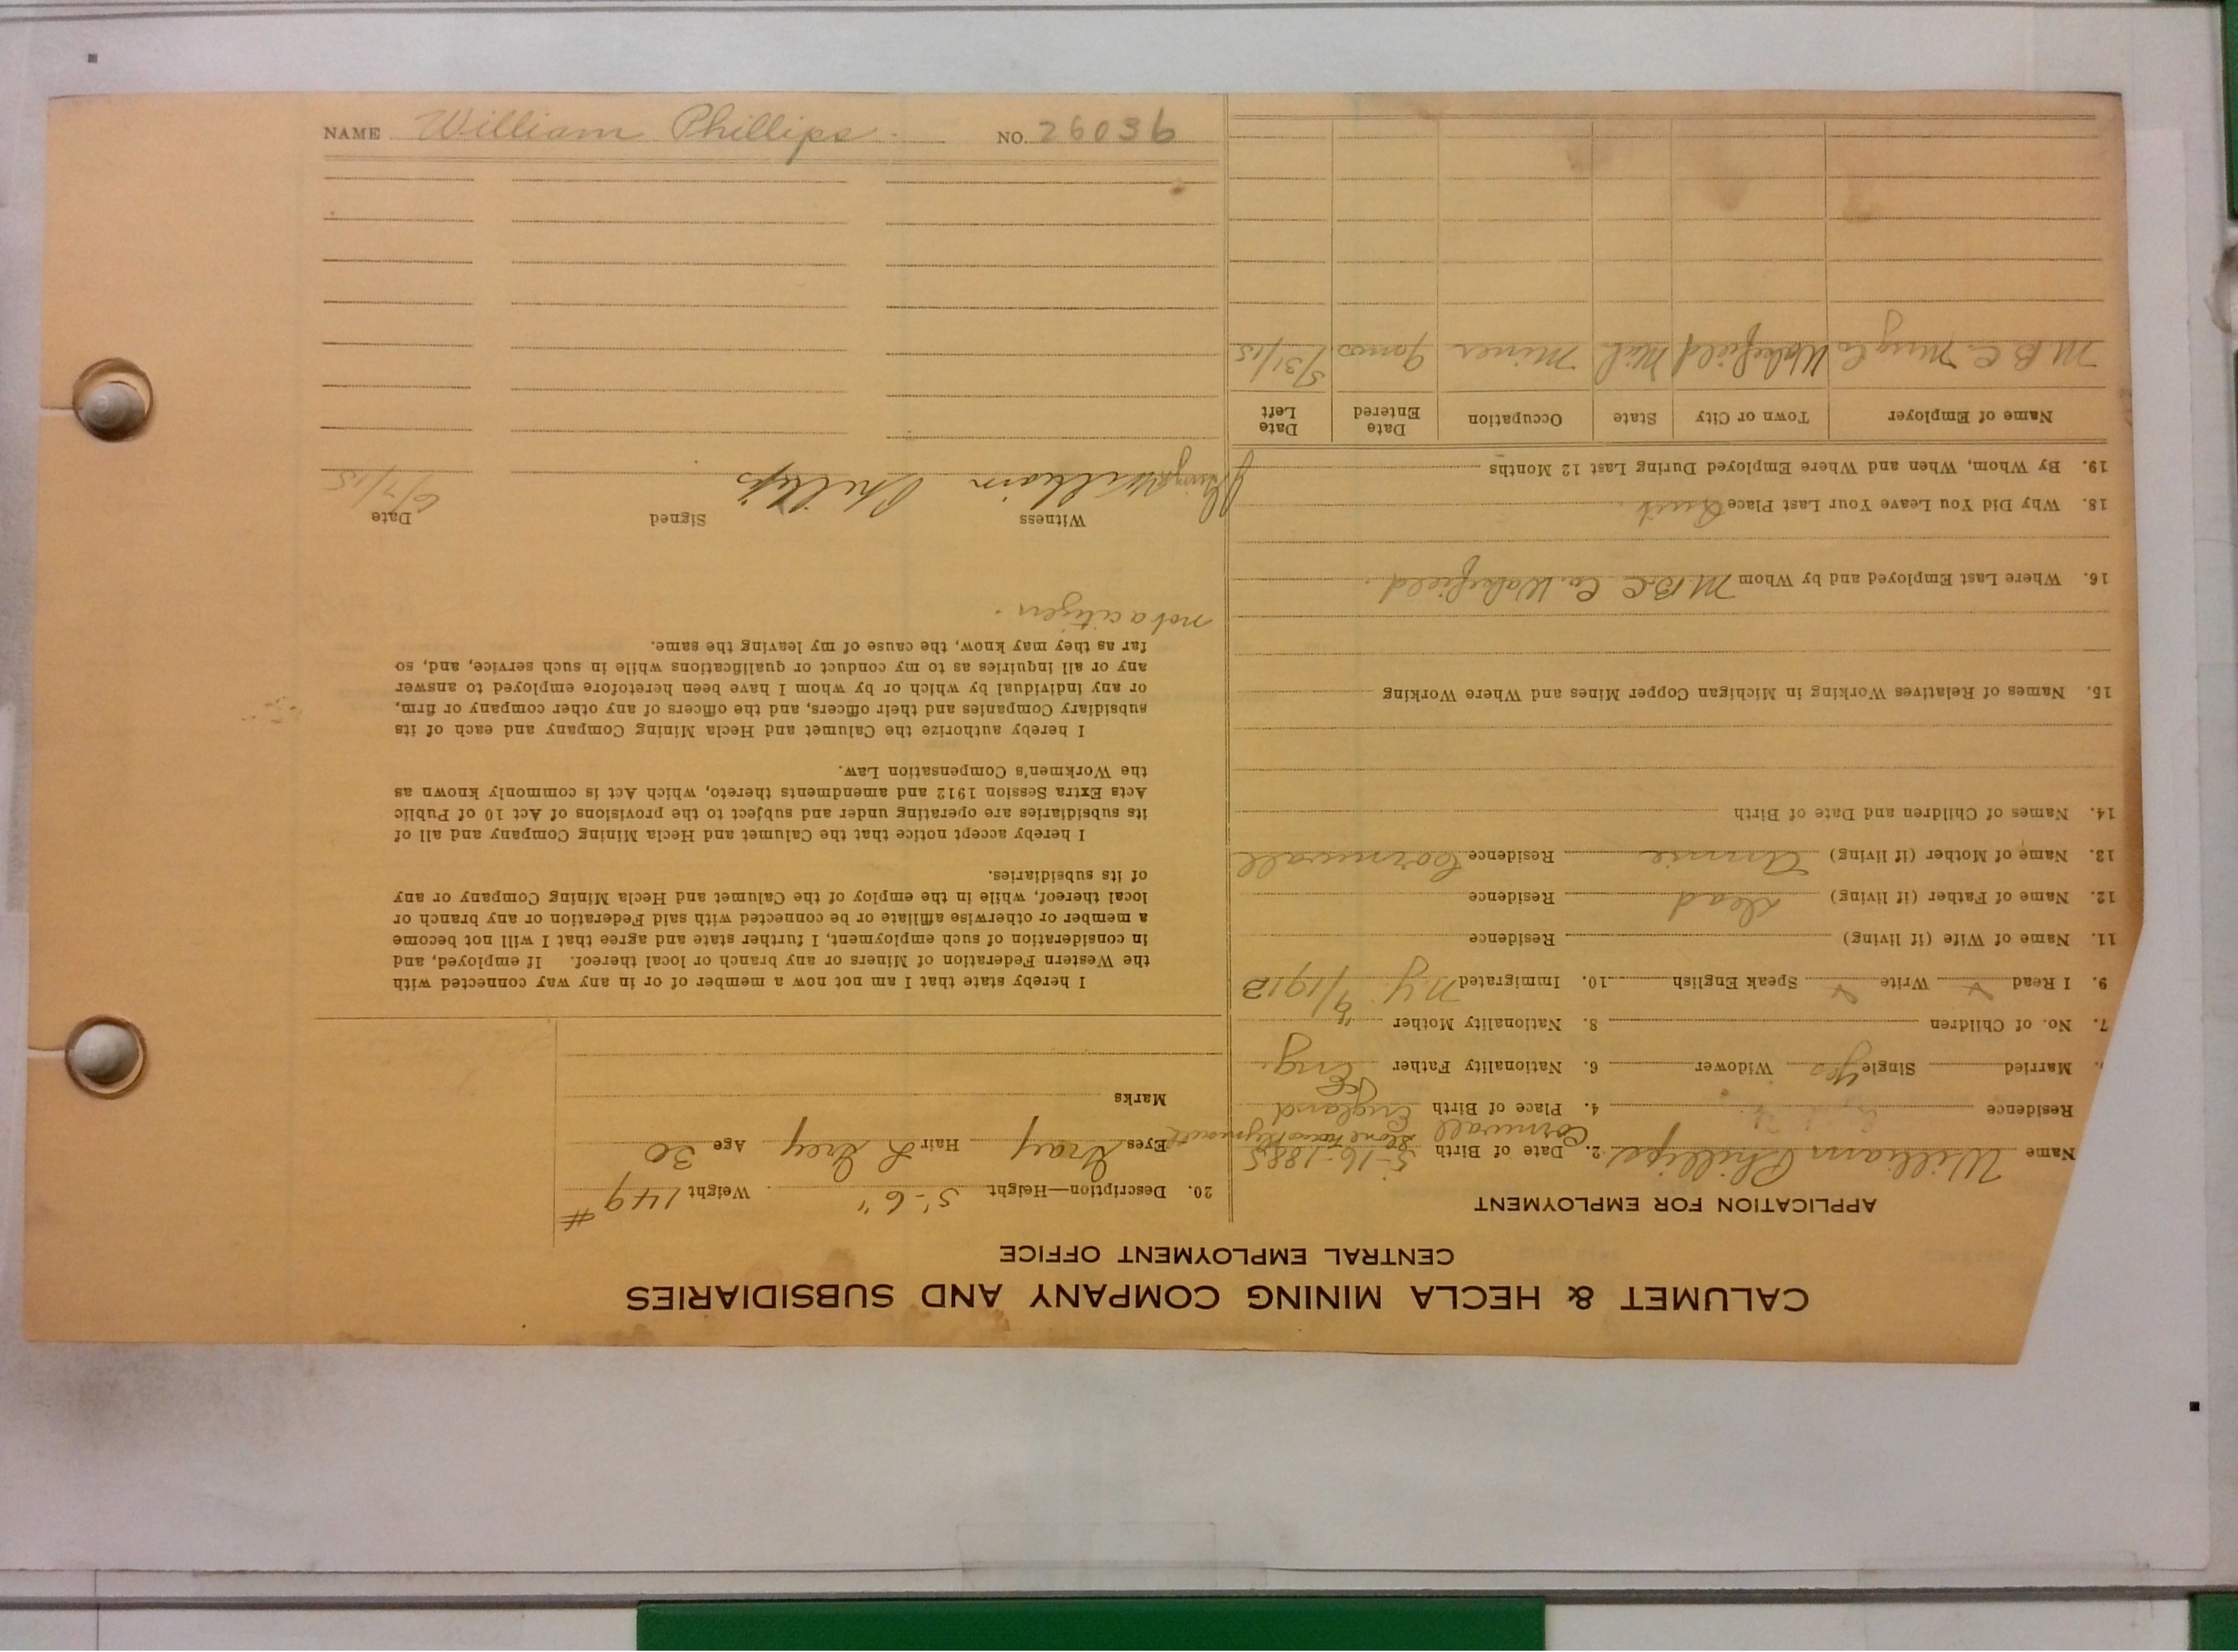 NAME William Phillips. NO. 26036
CALUMET & HECLA MINING COMPANY AND SUBSIDIARIES
CENTRAL EMPLOYMENT OFFICE
APPLICATION FOR EMPLOYMENT
Name William Phillips 2. Date of Birth 5-16-1885
Cornwall
Residence 4. Place of Birth England
Married Single Yes Widower 6. Nationality Father Eng.
7. No. of Children 8. Nationality Mother "
9. I Read Write Speak English 10. Immigrated N.Y.
11. Name of Wife (if living) Residence
12. Name of Father (if living) Dead Residence
13. Name of Mother (if living) Annie Residence Cornwall
14. Names of Children and Date of Birth
15. Names of Relatives Working in Michigan Copper Mines and Where Working
16. Where Last Employed and by Whom M.B.C. Co. Wakefield.
18. Why Did You Leave Your Last Place Quit.
19. By Whom, When and Where Employed During Last 12 Months
Name of Employer Town or City State Occupation Date Entered Date Left
M.B.C. Mng Co Wakefield Mich Miner 5/31/15
20. Description—Height 5'-6" Weight 149#
Eyes Gray Hair L Grey Age 30
Marks
I hereby state that I am not now a member of or in any way connected with
the Western Federation of Miners or any branch or local thereof. If employed, and
in consideration of such employment, I further state and agree that I will not become
a member or otherwise affiliate or be connected with said Federation or any branch or
local thereof, while in the employ of the Calumet and Hecla Mining Company or any
of its subsidiaries.
I hereby accept notice that the Calumet and Hecla Mining Company and all of
its subsidiaries are operating under and subject to the provisions of Act 10 of Public
Acts Extra Session 1912 and amendments thereto, which Act is commonly known as
the Workmen's Compensation Law.
I hereby authorize the Calumet and Hecla Mining Company and each of its
subsidiary Companies and their officers, and the officers of any other company or firm,
or any individual by which or by whom I have been heretofore employed to answer
any or all inquiries as to my conduct or qualifications while in such service, and, so
far as they may know, the cause of my leaving the same.
not a citizen.
Witness Signed Date
William Phillips 6/7/15